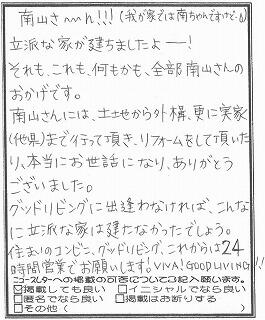 南山さ〜ん!!!(我が家では南ちゃんですけど…)
立派な家が建ちましたよー!
それも、これも、何もかも、全部南山さんの
おかげです。
南山さんには、土地から外構、更に実家
(他県)まで行って頂き、リフォームをして頂いた
り、本当にお世話になり、ありがとう
ございました。
グッドリビングに出逢わなければ、こんな
に立派な家は建たなかったでしょう。
住まいのコンビニ、グッドリビング、これからは24
時間営業でお願いします!VIVA!GOOD LIVING!!
ニュースターへの掲載の可否についてご記入願います。
☑掲載しても良い □イニシャルでなら良い
□匿名でなら良い □掲載はお断りする
□その他( )